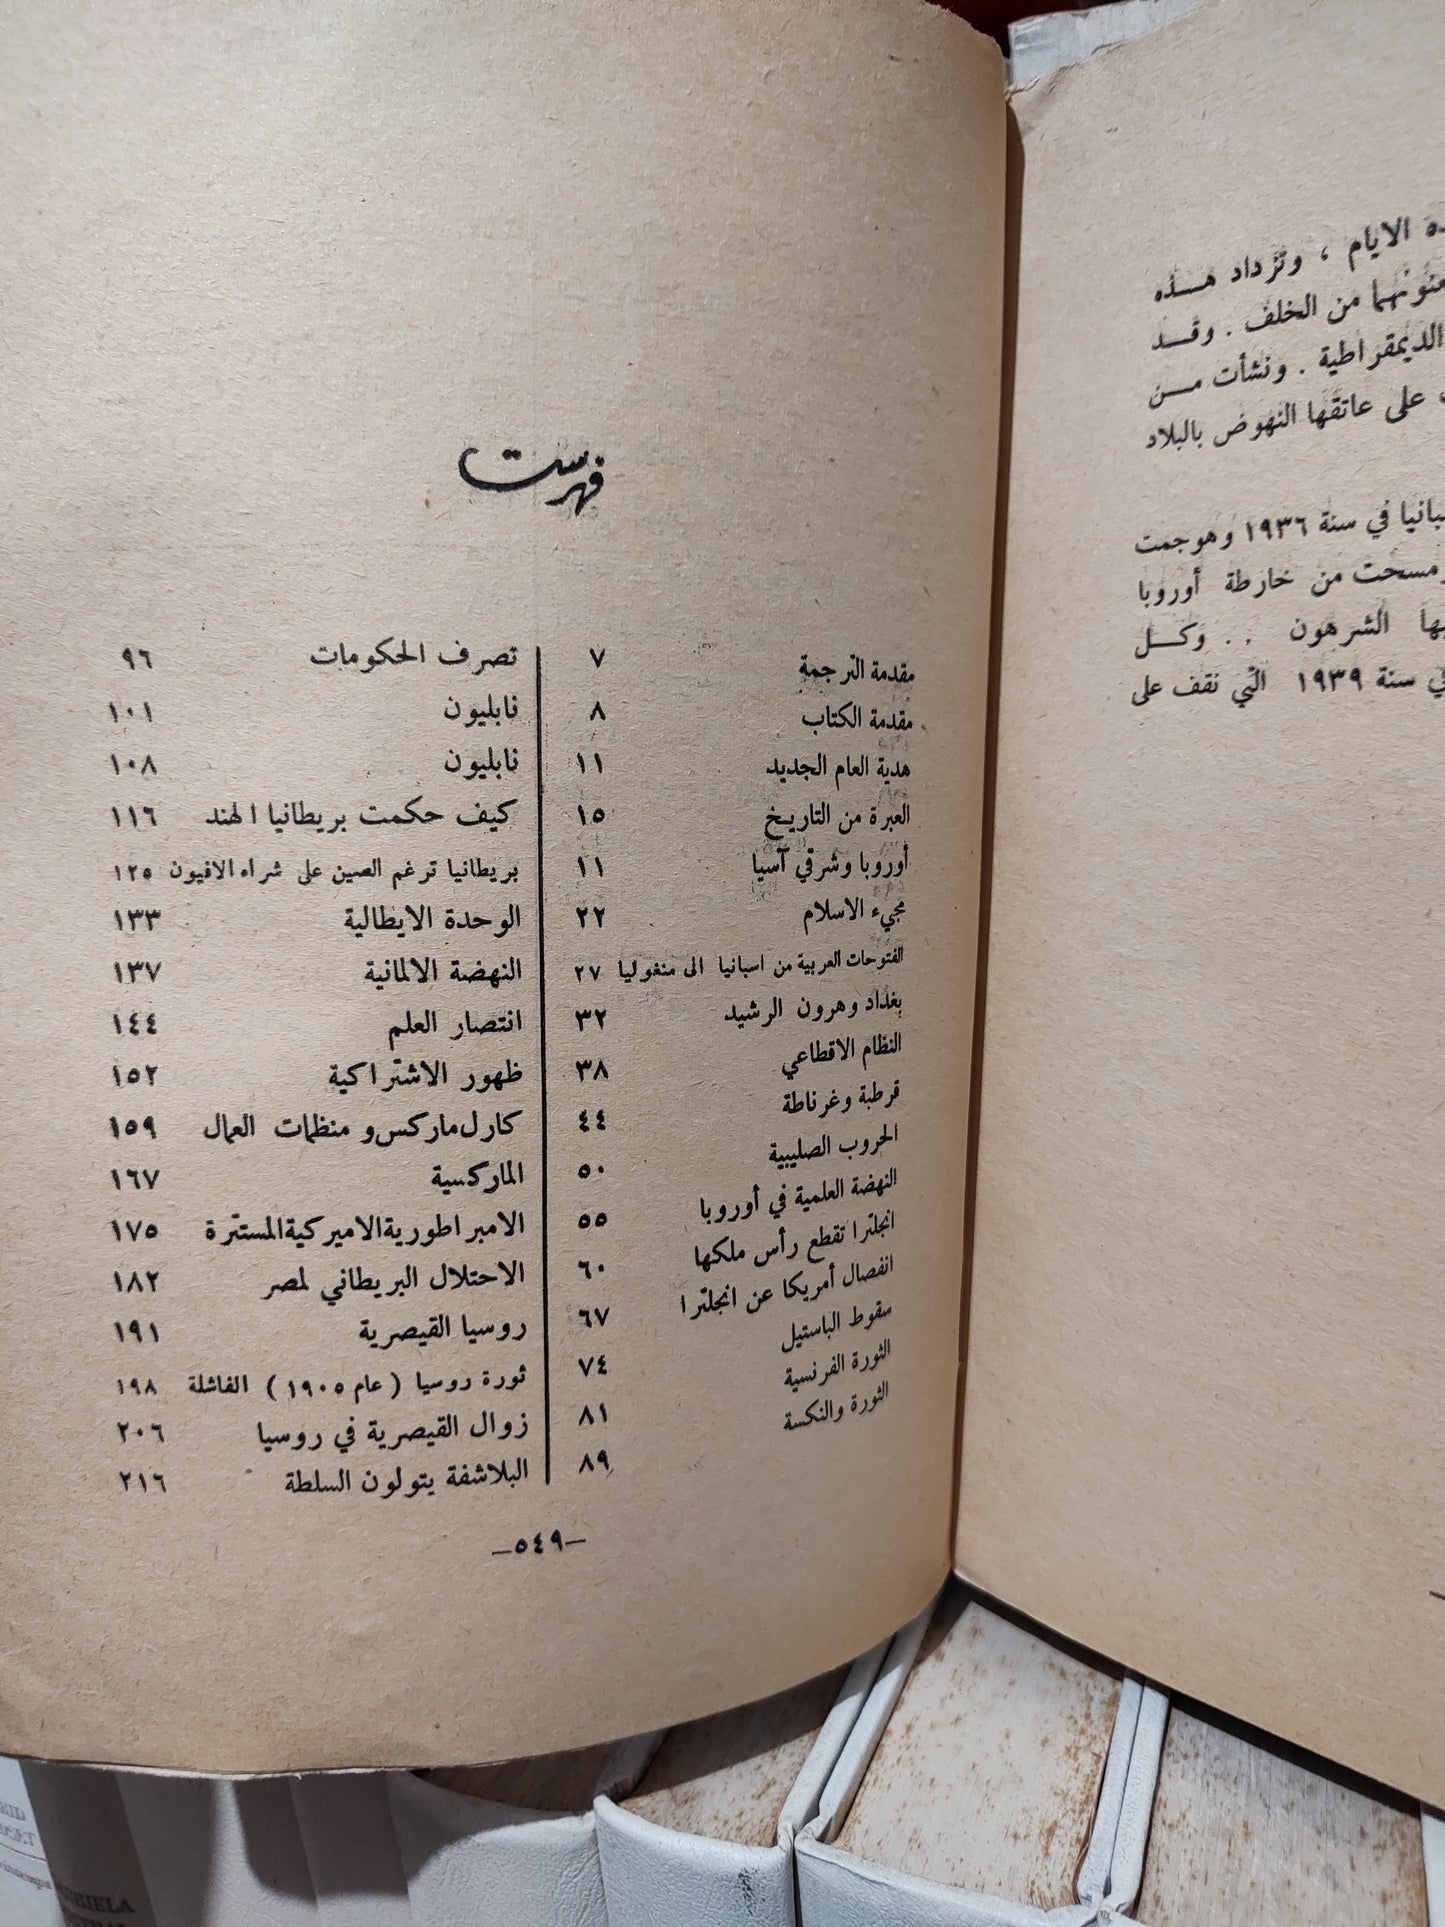 ه الايام ، وتزداد هـــذه
من الخلف . وقـــد
الديمقراطية . ونشأت مـــن
على عاتقها النهوض بالبلاد
في سنة ١٩٣٦ وهوجمت
من خارطة أوروبا
الشرهون . . وكـــل
في سنة ١٩٣٩ التي نقف على
فهرست
مقدمة الترجمة ٧
مقدمة الكتاب ٨
هدية العام الجديد ١١
العبرة من التاريخ ١٥
أوروبا وشرقي آسيا ١١
مجيء الاسلام ٢٢
الفتوحات العربية من اسبانيا الى منغوليا ٢٧
بغداد وهرون الرشيد ٣٢
النظام الاقطاعي ٣٨
قرطبة وغرناطة ٤٤
الحروب الصليبية ٥٠
النهضة العلمية في أوروبا ٥٥
انجلترا تقطع رأس ملكها ٦٠
انفصال أمريكا عن انجلترا ٦٧
سقوط الباستيل ٧٤
الثورة الفرنسية ٨١
الثورة والنكسة ٨٩
تصرف الحكومات ٩٦
نابليون ١٠١
نابليون ١٠٨
كيف حكمت بريطانيا الهند ١١٦
بريطانيا ترغم الصين على شراء الافيون ١٢٥
الوحدة الايطالية ١٣٣
النهضة الالمانية ١٣٧
انتصار العلم ١٤٤
ظهور الاشتراكية ١٥٢
كارل ماركس و منظمات العمال ١٥٩
الماركسية ١٦٧
الامبراطورية الاميركية المستترة ١٧٥
الاحتلال البريطاني لمصر ١٨٢
روسيا القيصرية ١٩١
ثورة روسيا ( عام ١٩٠٥ ) الفاشلة ١٩٨
زوال القيصرية في روسيا ٢٠٦
البلاشفة يتولون السلطة ٢١٦
–٥٤٩–